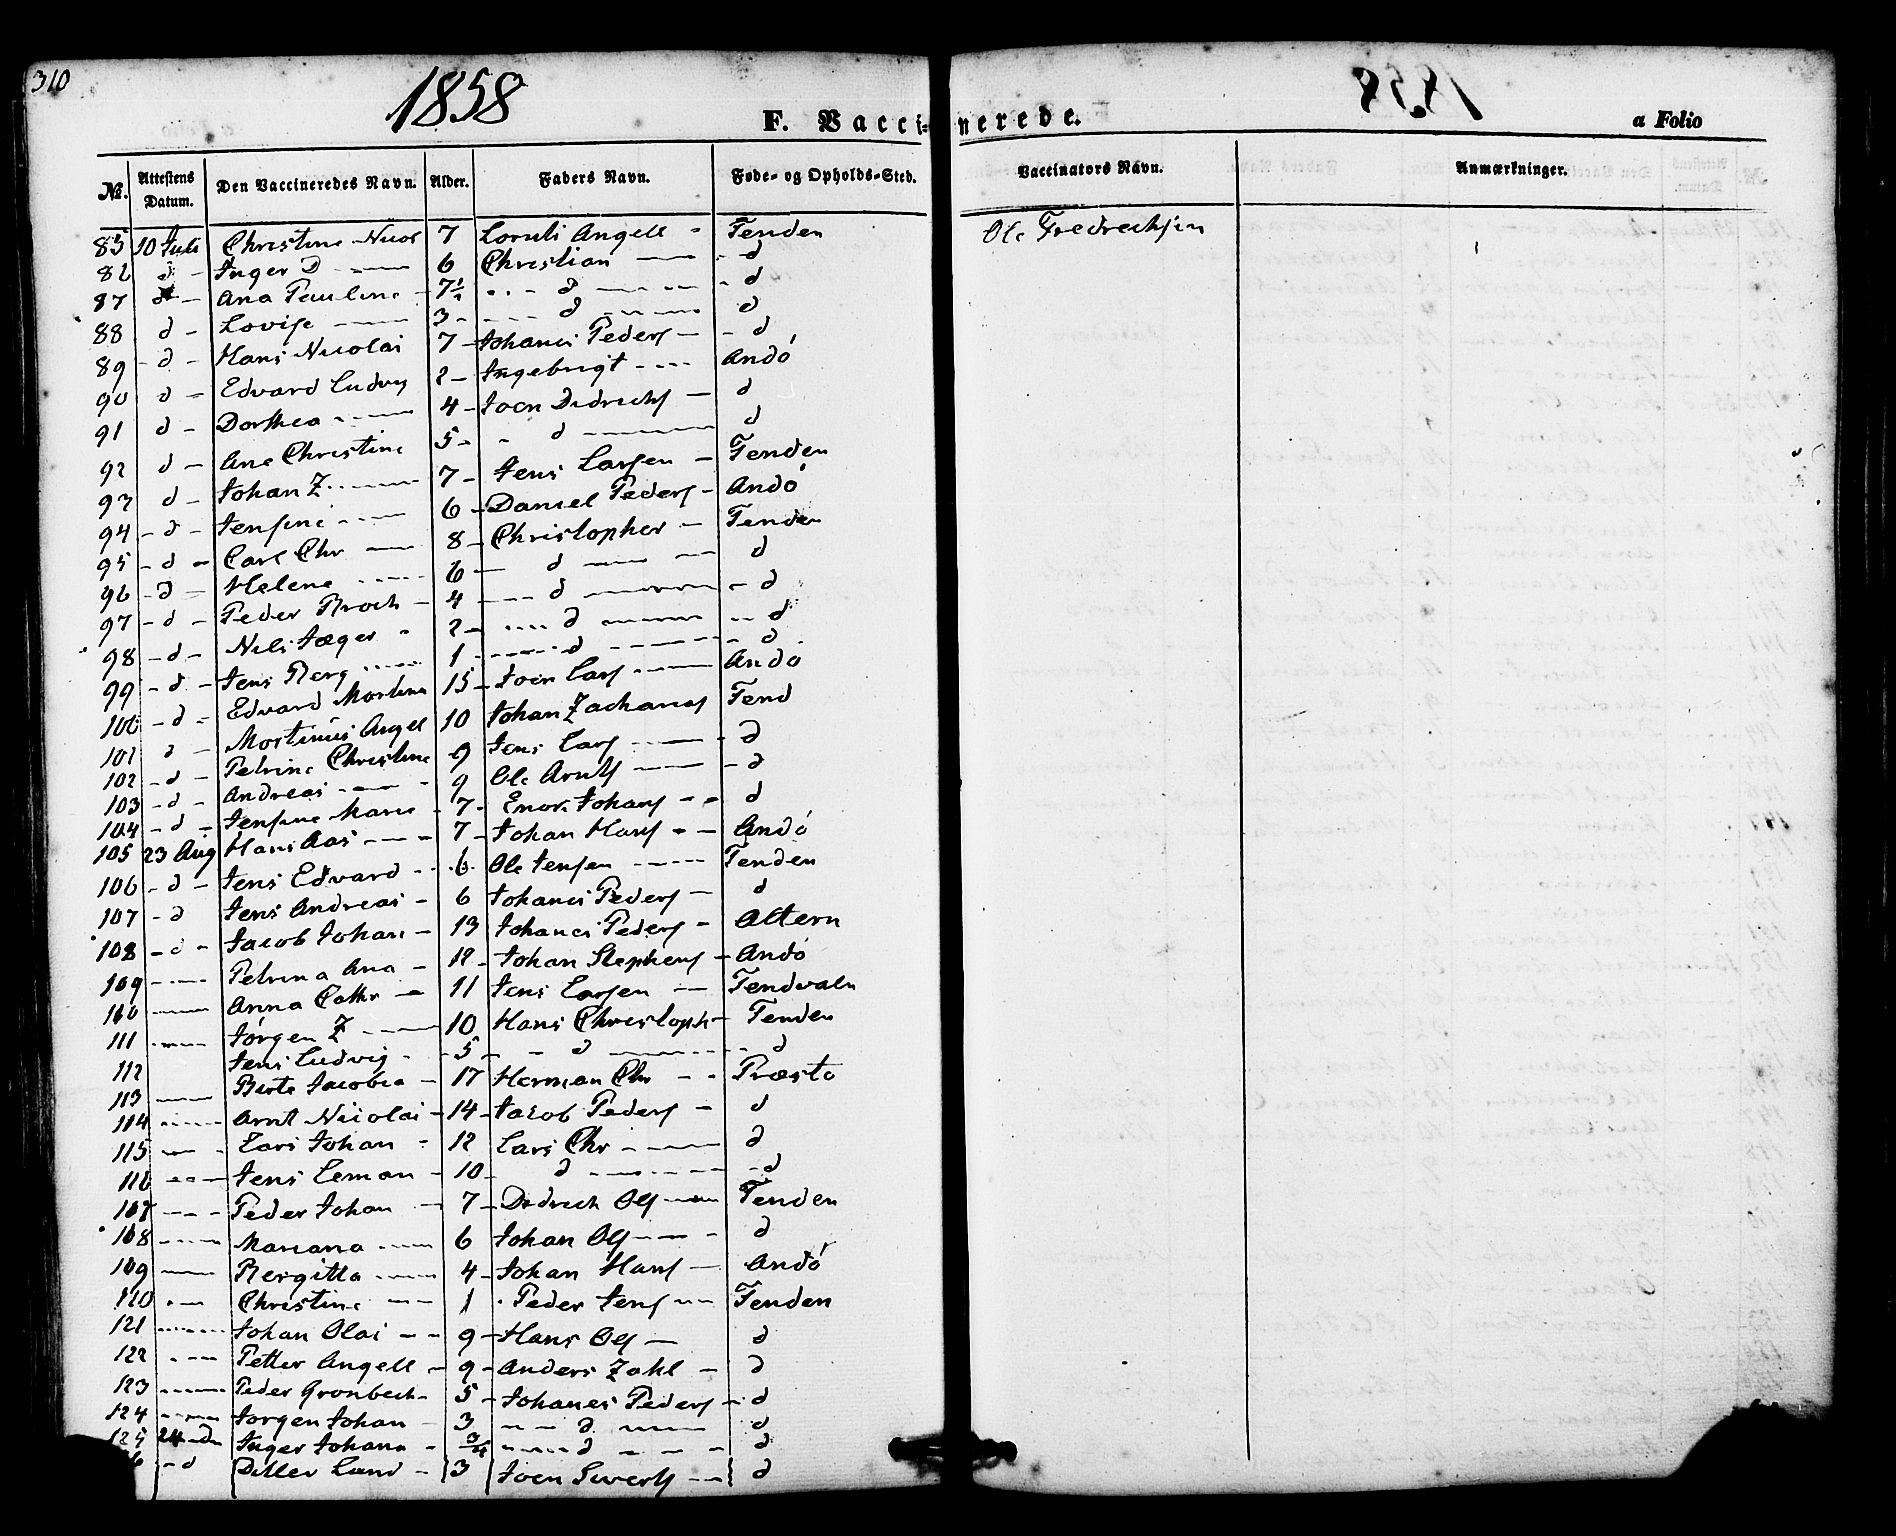 310
1858
F. Vaccinerede.
a Folio
№. Attestens Datum. Den Vaccineredes Navn. Alder. Faders Navn. Føde- og Opholds-Sted. Vaccinators Navn. Anmærkninger.
85 10 Juli Christine Nicol 7 Angell - Tenden Ole Fredrechsen
d - Inger D 6 Christian - d
87 d - Ana Pauline - 7½ d - d
88 d - Lovise 3 - d d
89 - d - Hans Nicolai 7 - Johanes Peders - - d
90 d - Edvard Ludvig 2 - Ingebrigt Andó
91 d - Dorthea 4 - Joen Didrichs - d
92 d - Ane Christine 5 - d d
93 d - Johan Z 7 - Jens Larsen - Tenden
94 - d - Jensine 6 - Daniel Peders - Andó
95 - d - Carl Chr 8 - Christopher - Tenden
96 - d - Helene 6 d d
97 - d - Peder Broch - 4 d - d
98 - d - Nils Jæger - 2 - d d
99 - d - Jens Berg 1 d - d
100 - d - Edvard Mortinus 15 - Joen Lars Andó
101 d - Mortinus Angell 10 Johan Zacharias Tend
102 - d - Petrine Christine 9 Jens Lars - d
103 - d - Andreas 9 Ole Arnts - d
104 - d - Jensine Marie - 7 - Enor Johans - - d
105 23 Aug Hans Aas 7 - Johan Hans - - Andó
106 - d - Jens Edvard 6 Ole Jensen Tenden
107 - d Jens Andreas - 6 Johanes Peders - d
108 - d - Jacob Johan - 13 Johanes Peders - Altern
109 Petrina Ana - 12 - Johan Stephens - Andó
110 Anna Cathr - 11 Jens Larsen Tendvaln
111 Jørgen Z 10 Hans Christoph - Tenden
112 Jens Ludvig - 5 d d
113 Berte Jacobea - 17 Herman Chr - - Præstø
114 Arnt Nicolai - 14 - Jacob Peders - d
115 Lars Johan - 12 Lars Chr - d
116 Jens Leman - 10 d - d
117 Peder Johan 7 - Didrich Ols Tenden
118 Mariana 6 Johan Ols d
119 Bergitta 4 - Johan Hans - Andó
120 Christine 1 Peder Jens Tenden
121 Johan Olai - - 9 - Hans Ols - d
122 Petter Angell - 9 - Anders Zahl - d
123 Peder Gronbech - 5 - Johanes Peders - d
124 Jørgen Johan 3 d d
125 24 d Inger Johana - ¾ d d
- d Ditlev Lund - 3 Joen Siverts d